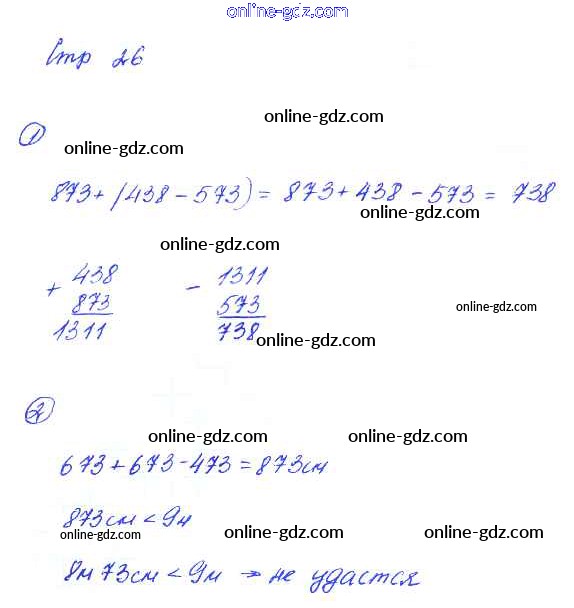 online-gdz.com
Стр 26
online-gdz.com
1
online-gdz.com
873+(438-573)=873+438-573=738
online-gdz.com
online-gdz.com
+ 438 - 1311
873 573 online-gdz.com
1311 738 online-gdz.com
2
online-gdz.com online-gdz.com
673+673-473=873см
873см<9м
online-gdz.com online-gdz.com online-gdz.com
8м 73см<9м → не удастся